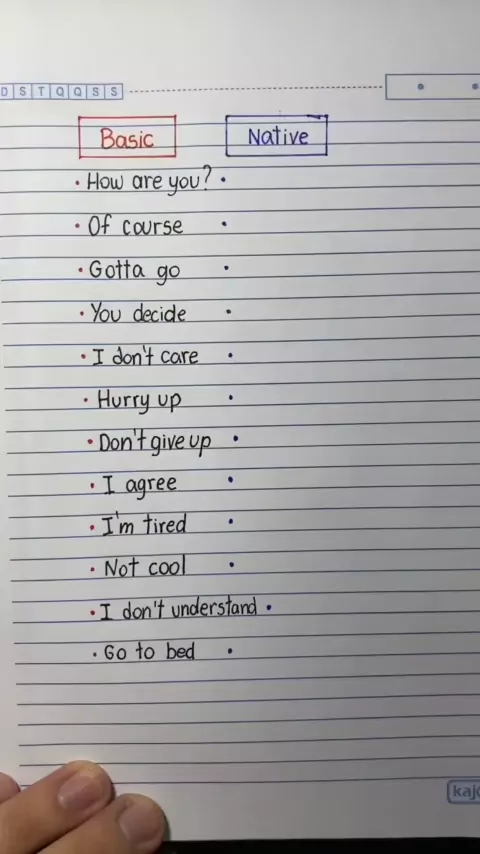 D S T Q Q S S
Basic Native
· How are you? ·
· Of course ·
· Gotta go ·
· You decide ·
· I don't care ·
· Hurry up ·
· Don't give up ·
· I agree ·
· I'm tired ·
· Not cool ·
· I don't understand ·
· Go to bed ·